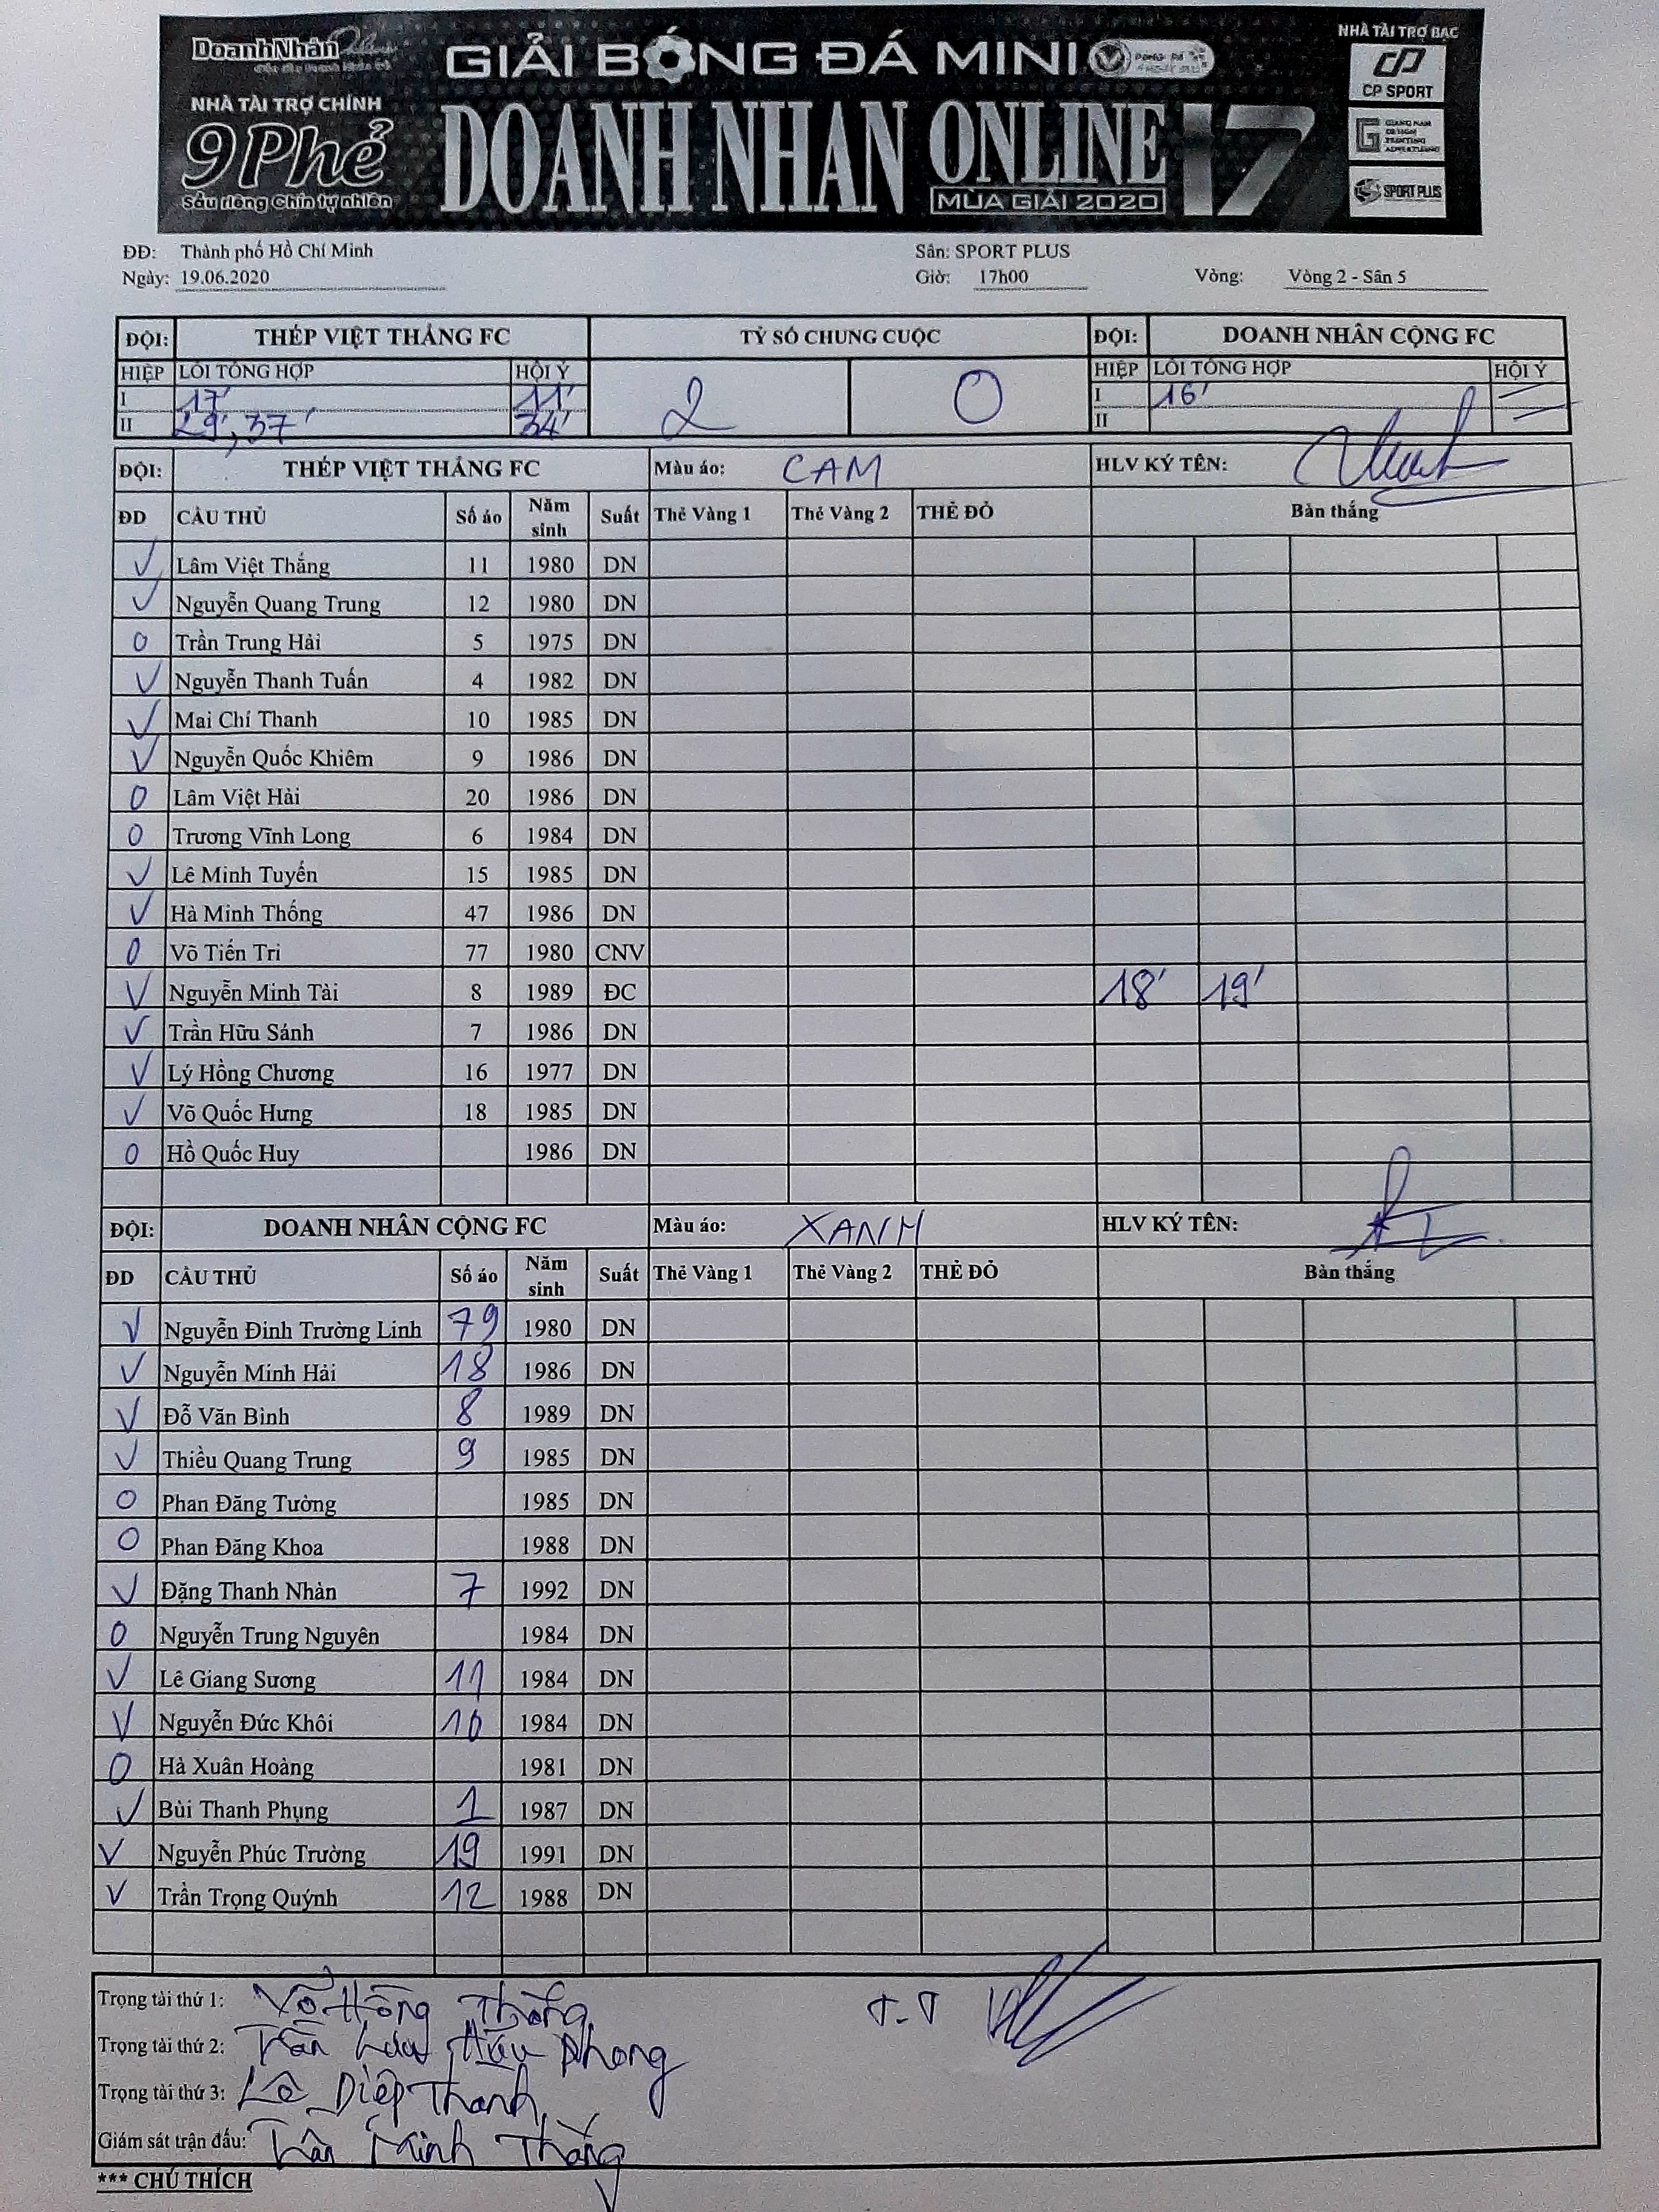 DoanhNhân
GIẢI BÓNG ĐÁ MINI
NHÀ TÀI TRỢ BẠC
CP SPORT
NHÀ TÀI TRỢ CHÍNH
9 Phẻ
Sầu riêng Chín tự nhiên
DOANH NHÂN ONLINE 17
MÙA GIẢI 2020
SPORT PLUS
ĐĐ: Thành phố Hồ Chí Minh Sân: SPORT PLUS
Ngày: 19.06.2020 Giờ: 17h00 Vòng: Vòng 2 - Sân 5
ĐỘI: THÉP VIỆT THẮNG FC TỶ SỐ CHUNG CUỘC ĐỘI: DOANH NHÂN CỘNG FC
HIỆP LỖI TỔNG HỢP HỘI Ý 2 0 HIỆP LỖI TỔNG HỢP HỘI Ý
I 17' 11' I 16'
II 29', 37' 34' II
ĐỘI: THÉP VIỆT THẮNG FC Màu áo: CAM HLV KÝ TÊN:
ĐD CẦU THỦ Số áo Năm sinh Suất Thẻ Vàng 1 Thẻ Vàng 2 THẺ ĐỎ Bàn thắng
✓ Lâm Việt Thắng 11 1980 DN
✓ Nguyễn Quang Trung 12 1980 DN
0 Trần Trung Hải 5 1975 DN
✓ Nguyễn Thanh Tuấn 4 1982 DN
✓ Mai Chí Thanh 10 1985 DN
✓ Nguyễn Quốc Khiêm 9 1986 DN
0 Lâm Việt Hải 20 1986 DN
0 Trương Vĩnh Long 6 1984 DN
✓ Lê Minh Tuyến 15 1985 DN
✓ Hà Minh Thống 47 1986 DN
0 Võ Tiến Tri 77 1980 CNV
✓ Nguyễn Minh Tài 8 1989 ĐC 18' 19'
✓ Trần Hữu Sánh 7 1986 DN
✓ Lý Hồng Chương 16 1977 DN
✓ Võ Quốc Hưng 18 1985 DN
0 Hồ Quốc Huy 1986 DN
ĐỘI: DOANH NHÂN CỘNG FC Màu áo: XANH HLV KÝ TÊN:
ĐD CẦU THỦ Số áo Năm sinh Suất Thẻ Vàng 1 Thẻ Vàng 2 THẺ ĐỎ Bàn thắng
✓ Nguyễn Đình Trường Linh 79 1980 DN
✓ Nguyễn Minh Hải 18 1986 DN
✓ Đỗ Văn Bình 8 1989 DN
✓ Thiều Quang Trung 9 1985 DN
0 Phan Đăng Tường 1985 DN
0 Phan Đăng Khoa 1988 DN
✓ Đặng Thanh Nhàn 7 1992 DN
0 Nguyễn Trung Nguyên 1984 DN
✓ Lê Giang Sương 11 1984 DN
✓ Nguyễn Đức Khôi 10 1984 DN
0 Hà Xuân Hoàng 1981 DN
✓ Bùi Thanh Phụng 1 1987 DN
✓ Nguyễn Phúc Trường 19 1991 DN
✓ Trần Trọng Quýnh 12 1988 DN
Trọng tài thứ 1: Võ Hồng Thắng T.T
Trọng tài thứ 2: Trần Lưu Hữu Phong
Trọng tài thứ 3: Lê Diệp Thanh
Giám sát trận đấu: Trần Minh Thắng
*** CHÚ THÍCH